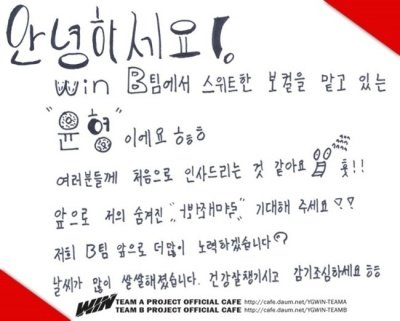 안녕하세요!
win B팀에서 스위트한 보컬을 맡고 있는
"윤형"이에요 ㅎㅎㅎ
여러분들께 처음으로 인사드리는 것 같아요 훗!!
앞으로 저의 숨겨진 기대해 주세요♡♡
저희 B팀 앞으로 더 많이 노력하겠습니다♡
날씨가 많이 쌀쌀해졌습니다. 건강잘챙기시고 감기조심하세요 ㅎㅎ
WIN TEAM A PROJECT OFFICIAL CAFE / http://cafe.daum.net/YGWIN-TEAMA
TEAM B PROJECT OFFICIAL CAFE / http://cafe.daum.net/YGWIN-TEAMB